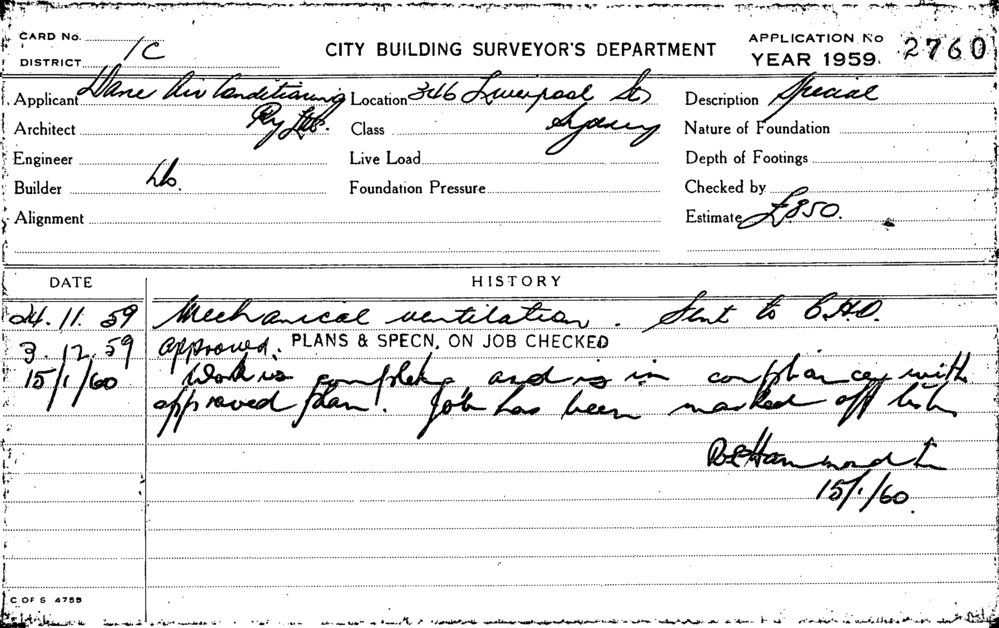 CARD No.
DISTRICT 1C
CITY BUILDING SURVEYOR'S DEPARTMENT
APPLICATION No 2760
YEAR 1959.
Applicant Dane Air Conditioning Location 346 Liverpool St Description Special
Architect Pty Ltd. Class Sydney Nature of Foundation
Engineer Live Load Depth of Footings
Builder Do. Foundation Pressure Checked by
Alignment Estimate £850.
DATE HISTORY
24.11.59 Mechanical ventilation. Sent to C.H.O.
3.12.59 approved. PLANS & SPECN. ON JOB CHECKED
15/1/60 Work is complete, and is in compliance with
approved plan. Job has been marked off list
Hammond
15/1/60.
C OF S 4755